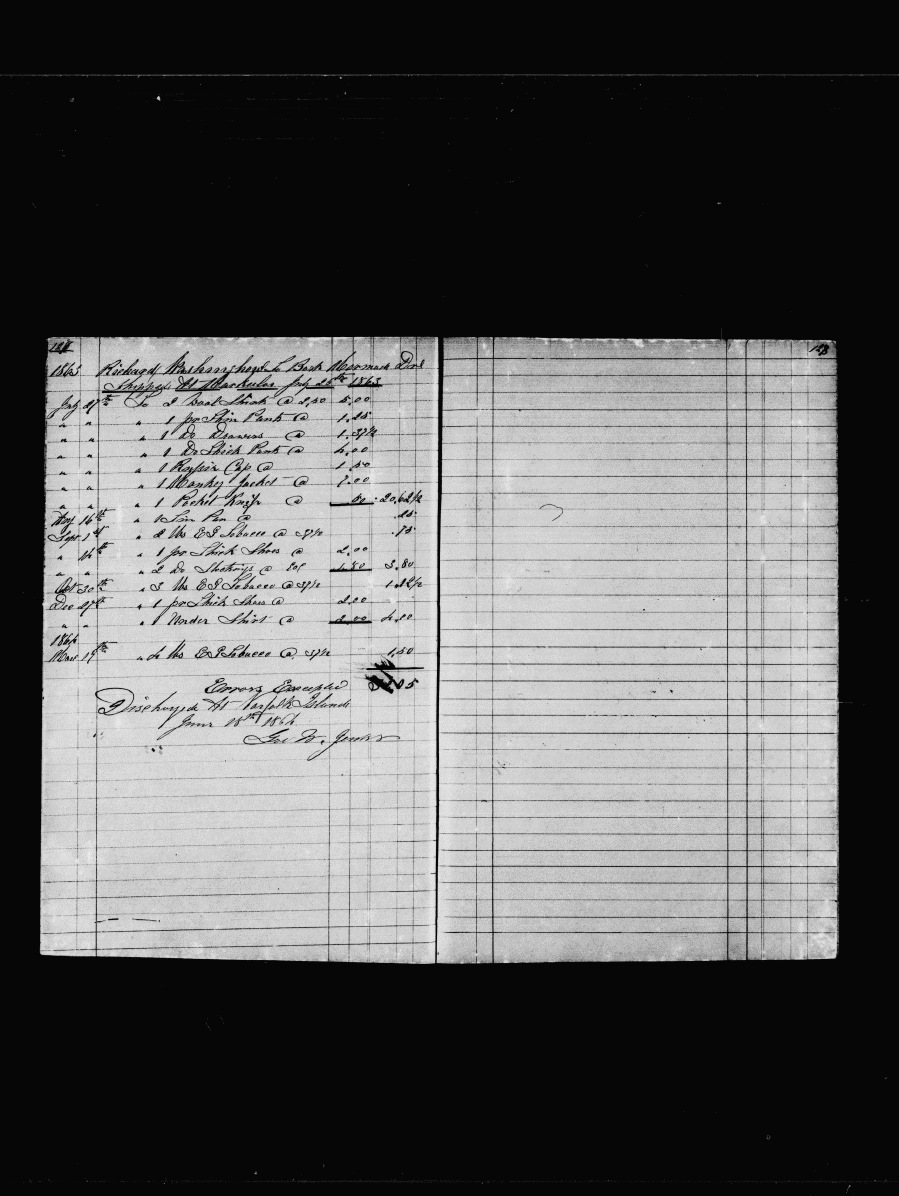 1863 Richard to Bark Mermaid Dr
Shipped At July 25th 1863
July 27th To 2 Wool Shirts @ 2,50 5.00
" " " 1 pr Thin Pants @ 1.25
" " " 1 Do Drawers @ 1.37½
" " " 1 Do Thick Pants @ 4.00
" " " 1 Cap @ 1.50
" " " 1 Monkey Jacket @ 7.00
" " " 1 Pocket Knife @ 50 20,62½
Aug 16th " 1 Tin Pan @ .25
Sept 1st " 2 lbs Tobacco @ 37½ .75
" 14th " 1 pr Thick Shoes @ 2.00
" " " 2 Do Stockings @ 1.80 3.80
Oct 30th " 3 lbs Tobacco @ 37½ 1.12½
Dec 27th " 1 pr Thick Shoes @ 2.00
" " " 1 Under Shirt @ 2.00 4.00
1864
Mar 19th " 4 lbs Tobacco @ 37½ 1,50
Errors Excepted
Discharged At Norfolk Island
June 18th 1864
Geo W.